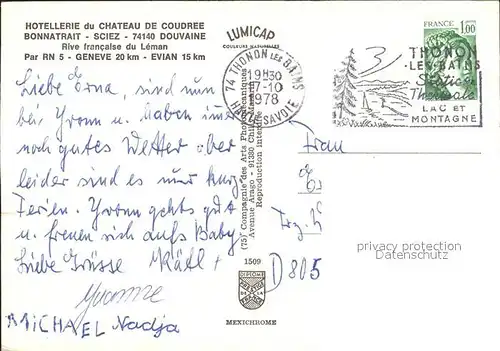 HOTELLERIE du CHATEAU DE COUDREE
BONNATRAIT - SCIEZ - 74140 DOUVAINE
Rive française du Léman
Par RN 5 - GENEVE 20 km - EVIAN 15 km
LUMICAP
COULEURS NATURELLES
74 THONON LES BAINS
19H30
17-10
1978
HAUTE-SAVOIE
THONON
-LES-BAINS
Station
Thermale
LAC ET
MONTAGNE
FRANCE
1,00
Liebe Erna, sind nun
bei Yvonn u. haben imm
noch gutes Wetter aber
leider sind es nur kurz
Ferien. Yvonn gehts gut
u. freuen sich aufs Baby
Liebe Grüsse Käti +
Yvonne
MICHAEL Nadja
(75) Compagnie des Arts Photomécaniques
Avenue Arago - 91380 Chilly
Reproduction interdite
Frau
D 805
privacy protection
Datenschutz
1509
DIPLOME
PRESTIGE
DE LA
FRANCE
MEXICHROME